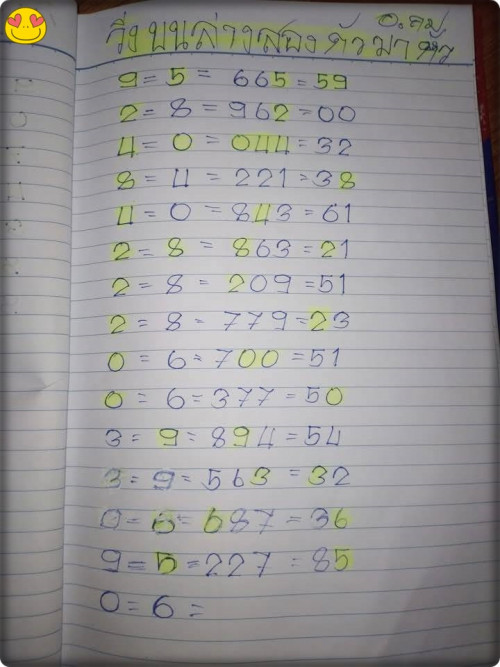 อ.คม
วิ่งบนล่างสองตัวมาตัว
9 = 5 = 665 = 59
2 = 8 = 962 = 00
4 = 0 = 044 = 32
8 = 4 = 221 = 38
4 = 0 = 843 = 61
2 = 8 = 863 = 21
2 = 8 = 209 = 51
2 = 8 = 779 = 23
0 = 6 = 700 = 51
0 = 6 = 377 = 50
3 = 9 = 894 = 54
3 = 9 = 563 = 32
0 = 6 = 687 = 36
9 = 5 = 227 = 85
0 = 6 =